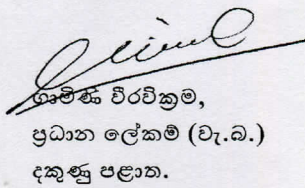 ගාමිණී වීරවික්‍රම,
ප්‍රධාන ලේකම් (වැ.බ.)
දකුණු පළාත.